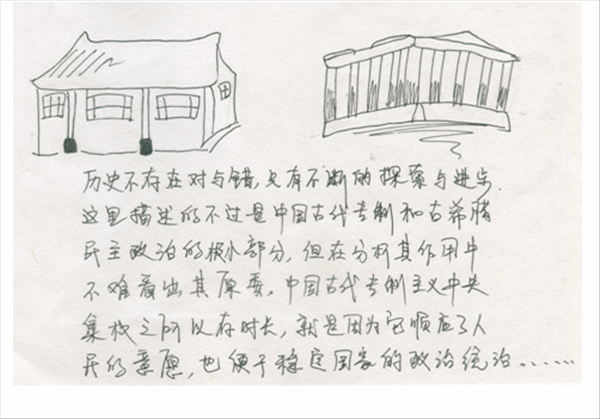 历史不存在对与错,只有不断的探索与进步.
这里描述的不过是中国古代专制和古希腊
民主政治的极小部分,但在分析其作用中
不难看出其原委,中国古代专制主义中央
集权之所以存时长,就是因为它顺应了人
民的意愿,也便于稳定国家的政治统治......